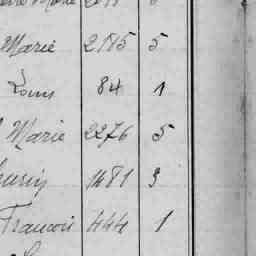 Marie 2115 5
Louis 84 1
Marie 2276 5
1481 3
Francois 444 1